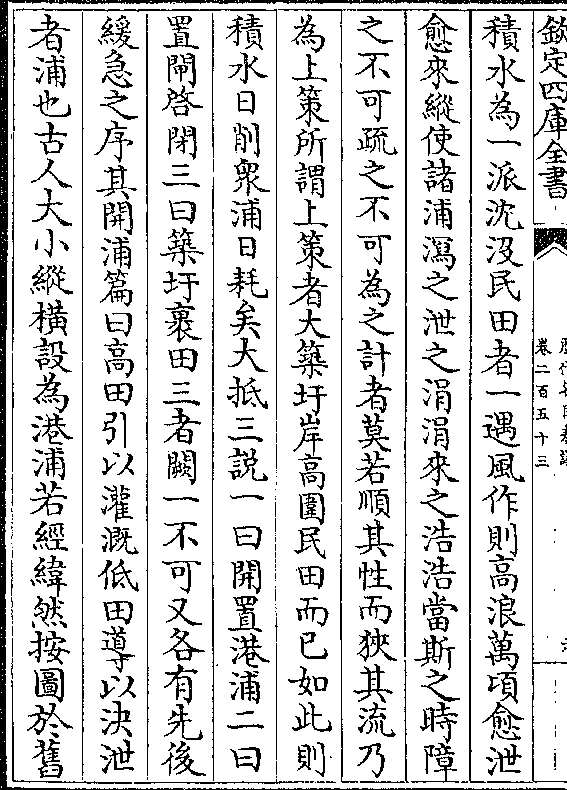 欽定四庫全書
卷二百五十三
積水為一派沈沒民田者一遇風作則高浪萬頃愈泄
愈來縱使諸浦瀉之泄之涓涓來之浩浩當斯之時障
之不可疏之不可為之計者莫若順其性而狹其流乃
為上策所謂上策者大築圩岸高圍民田而已如此則
積水日削衆浦日耗矣大抵三説一曰開置港浦二曰
置閘啓閉三曰築圩裹田三者闕一不可又各有先後
緩急之序其開浦篇曰高田引以灌溉低田導以決泄
者浦也古人大小縱横設為港浦若經緯然按圖於舊